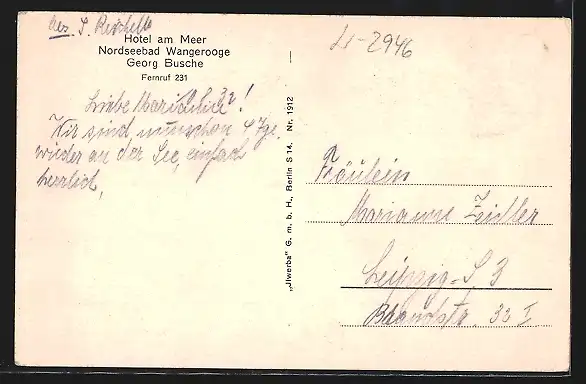 Abs. S. Reichelt
Hotel am Meer
Nordseebad Wangerooge
Georg Busche
Fernruf 231
Li-2946
Liebe Marianne!
Wir sind nun schon 4 Tge.
wieder an der See, einfach
herrlich,
„Jiwerba" G. m. b. H., Berlin S 14. Nr. 1912
Fräulein
Marianne Zeidler
Leipzig-S 3
32 I